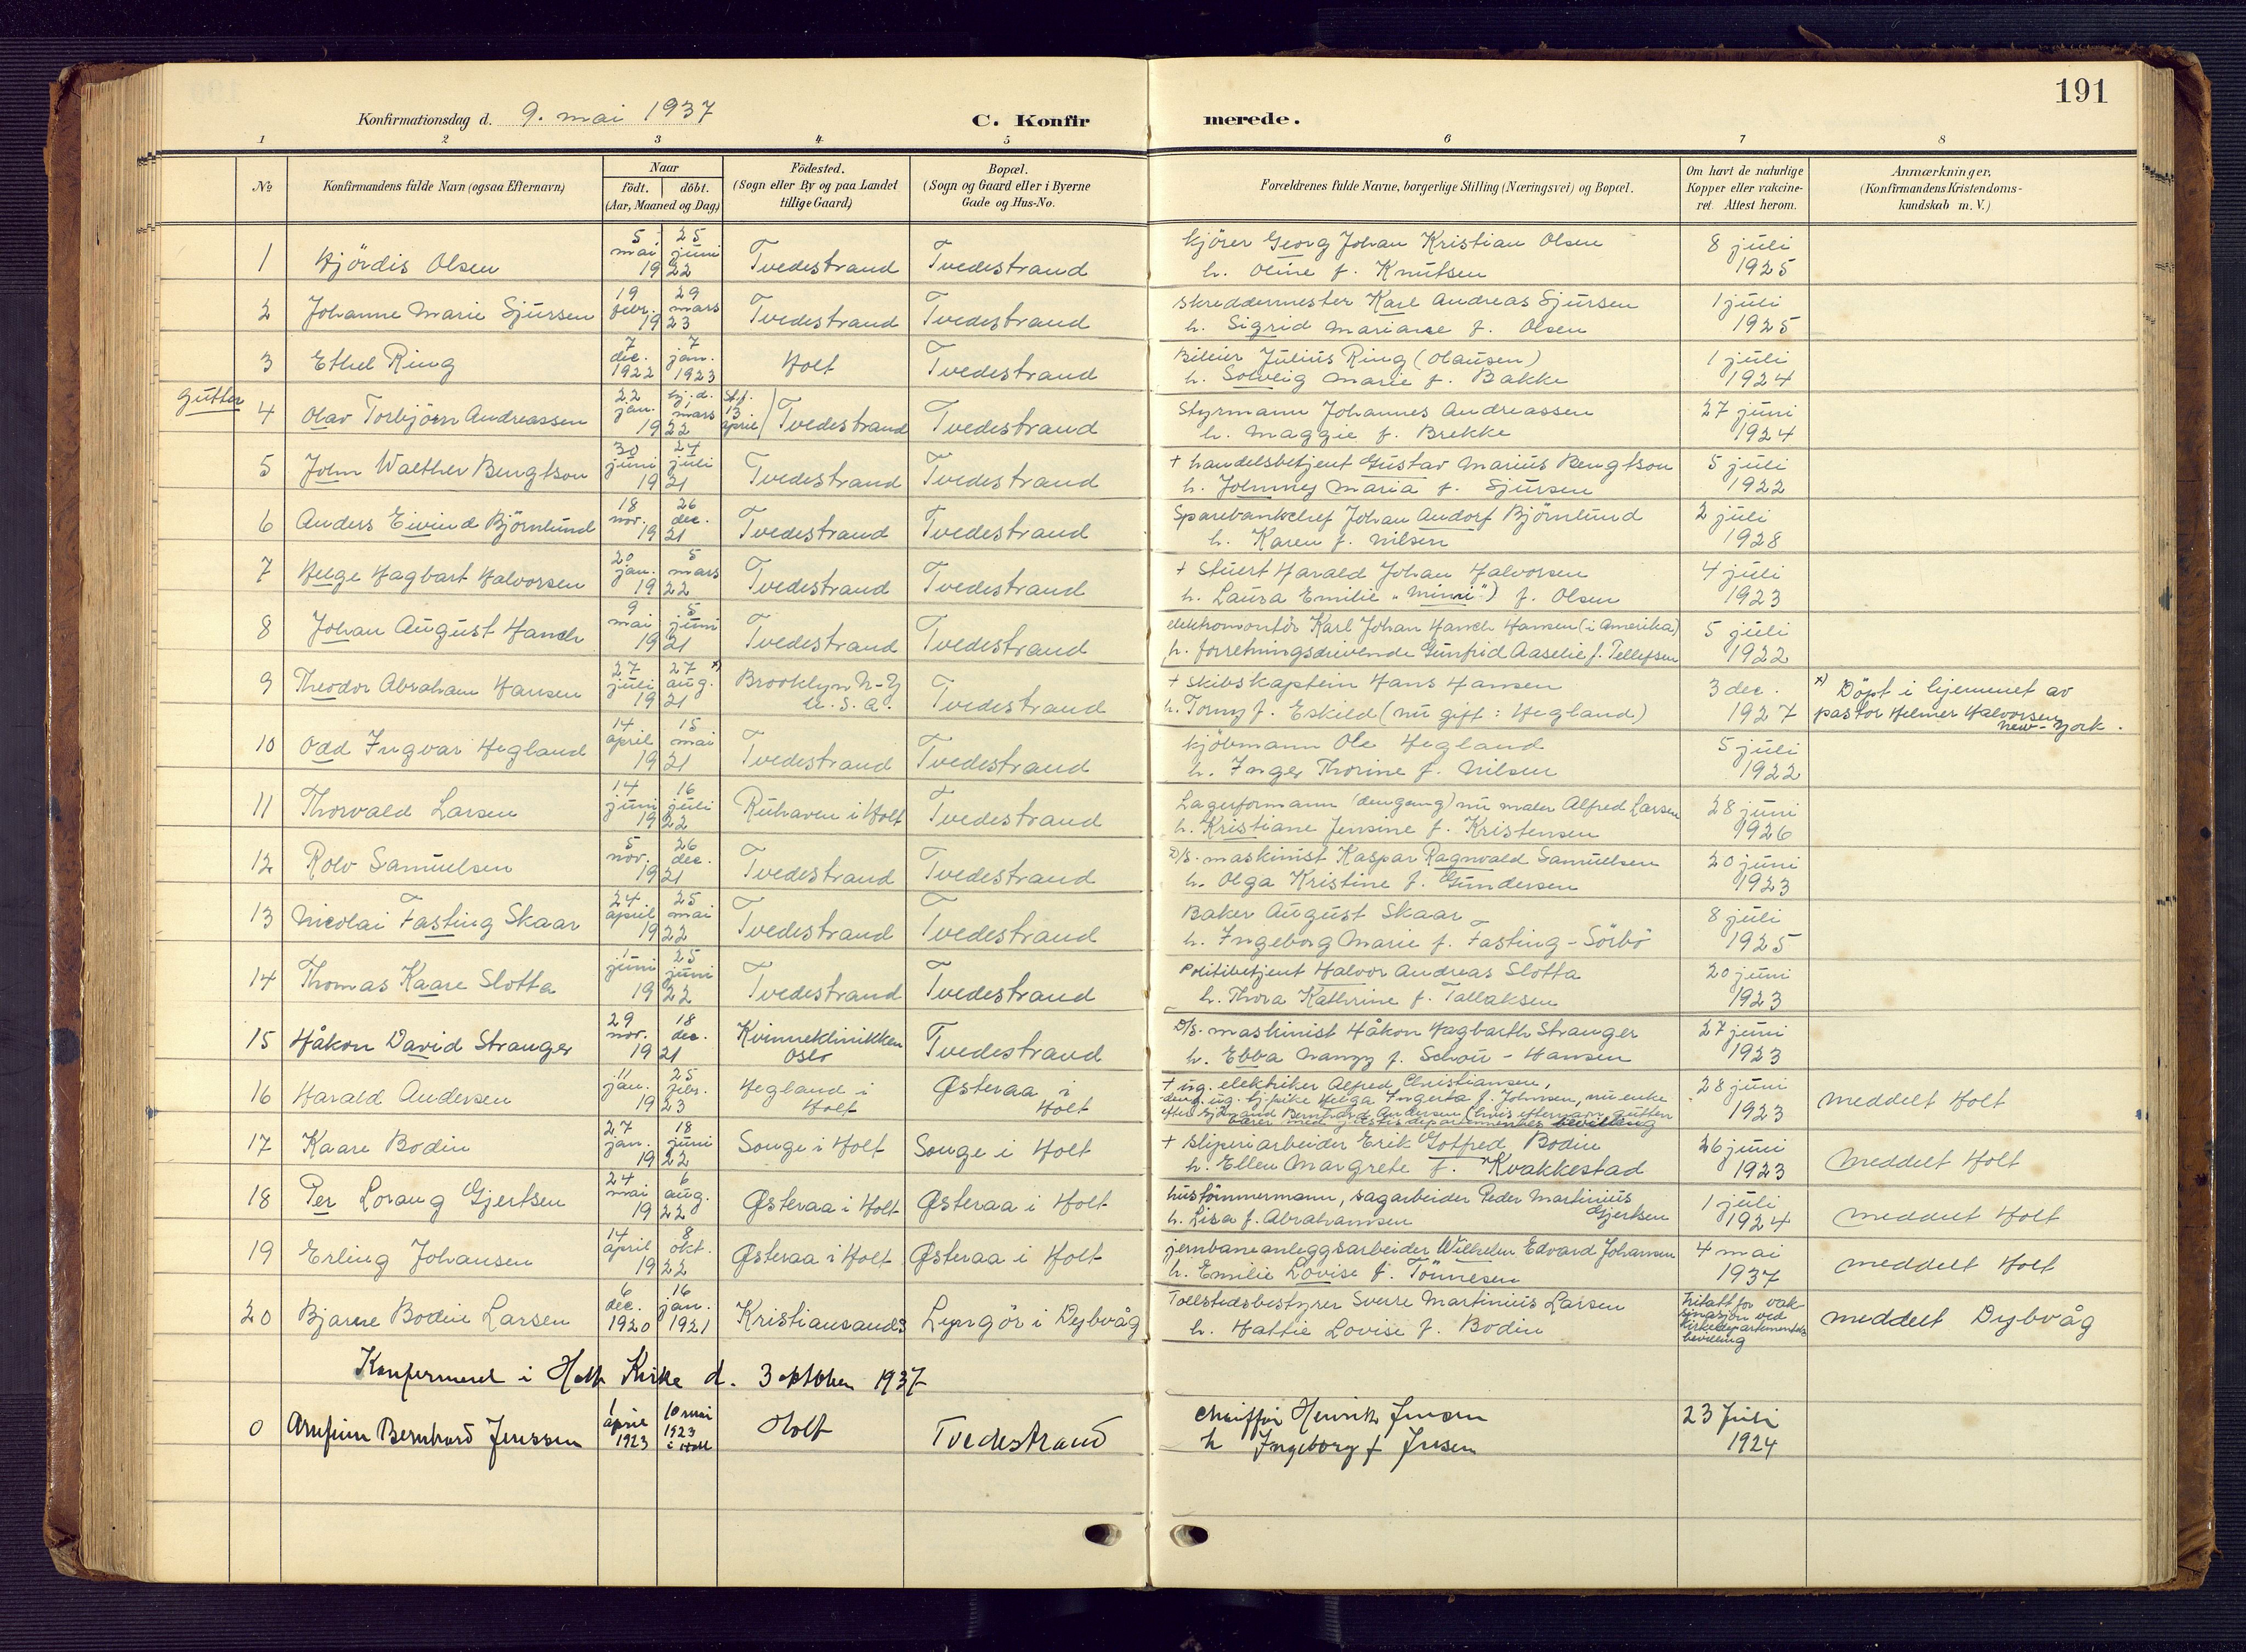 191
Konfirmationsdag d. 9. mai 1937
C. Konfirmerede.
1 2 3 4 5 6 7 8
№ Konfirmandens fulde Navn (ogsaa Efternavn) Naar födt. döbt. (Aar, Maaned og Dag) Födested. (Sogn eller By og paa Landet tillige Gaard) Bopæl. (Sogn og Gaard eller i Byerne Gade og Hus-No. Forældrenes fulde Navne, borgerlige Stilling (Næringsvei) og Bopæl. Om havt de naturlige Kopper eller vakcineret. Attest herom. Anmærkninger, (Konfirmandens Kristendomskundskab m. V.)
1 Hjördis Olsen 5 mai 25 juni 1922 Tvedestrand Tvedestrand kjörer Georg Johan Kristian Olsen 8 juli
h. Oline f. Knutsen 1925
2 Johanne Marie Sjursen 19 febr. 29 mars 1923 Tvedestrand Tvedestrand skreddermester Karl Andreas Sjursen 1 juli
h. Sigrid Mariane f. Olsen 1925
3 Ethel Ring 7 dec. 1922 7 jan. 1923 Holt Tvedestrand Bileier Julius Ring (Olausen) 1 juli
h. Solveig Marie f. Bakke 1924
Gutter
4 Olav Torbjörn Andreassen 22 jan. hj.d. 1 mars 1922 st.f. 13 april Tvedestrand Tvedestrand Styrmann Johannes Andreassen 27 juni
h. Maggie f. Brekke 1924
5 John Walther Bengtson 30 juni 24 juli 1921 Tvedestrand Tvedestrand + handelsbetjent Gustav Marius Bengtson 5 juli
h. Johnney Maria f. Sjursen 1922
6 Anders Eivind Björnlund 18 nov. 26 dec. 1921 Tvedestrand Tvedestrand Sparebankchef Johan Andorf Björnlund 2 juli
h. Karen f. Nilsen 1928
7 Helge Hagbart Halvorsen 20 jan. 5 mars 1922 Tvedestrand Tvedestrand + Stuert Harald Johan Halvorsen 4 juli
h. Laura Emilie „Mimi") f. Olsen 1923
8 Johan August Hanch 9 mai 5 juni 1921 Tvedestrand Tvedestrand elektromontör Karl Johan Hanch Hansen (i Amerika) 5 juli
h. forretningsdrivende Gunfrid Aaselie f. Tellefsen 1922
9 Theodor Abraham Hansen 27 juli 27 aug. x) 1921 Brooklyn N-Y U.S.A. Tvedestrand + Skibskaptein Hans Hansen 3 dec. x) Döpt i hjemmet av
h. Tomy f. Eskild (nu gift: Hegland) 1927 pastor Helmer Halvorsen New-York.
10 Odd Ingvar Hegland 14 april 15 mai 1921 Tvedestrand Tvedestrand kjöbmann Ole Hegland 5 juli
h. Inger Thorine f. Nilsen 1922
11 Thorvald Larsen 14 juni 16 juli 1922 Ruhaven i Holt Tvedestrand Lagerformann (dengang) nu maler Alfred Larsen 28 juni
h. Kristiane Jensine f. Kristensen 1926
12 Rolv Samuelsen 5 nov. 26 dec. 1921 Tvedestrand Tvedestrand D/S. maskinist Kaspar Ragnvald Samuelsen 20 juni
h. Olga Kristine f. Gundersen 1923
13 Nicolai Fasting Skaar 24 april 25 mai 1922 Tvedestrand Tvedestrand Baker August Skaar 8 juli
h. Ingeborg Marie f. Fasting-Sörbö 1925
14 Thomas Kaare Slotta 1 juni 25 juni 1922 Tvedestrand Tvedestrand Politibetjent Halvor Andreas Slotta 20 juni
h. Thora Kathrine f. Tallaksen 1923
15 Håkon David Stranger 29 nov. 18 dec. 1921 Kvinneklinikken Oslo Tvedestrand D/S. maskinist Håkon Hagbarth Stranger 27 juni
h. Ebba Nangy f. Schou-Hansen 1923
16 Harald Andersen 11 jan. 25 febr. 1923 Hegland i Holt Østeraa i Holt + ug. elektriker Alfred Christiansen, 28 juni
deng. ug. tj.pike Helga Ingerta f. Johnsen, nu enke 1923 meddelt Holt
efter Bernhard Andersen (hvis efternavn gutten bærer med justisdepartementets bevilling
17 Kaare Bodin 27 jan. 18 juni 1922 Songe i Holt Songe i Holt + sliperiarbeider Erik Gotfred Bodin 26 juni
h. Ellen Margrete f. Kvakkestad 1923 meddelt Holt
18 Per Lorang Gjertsen 24 mai 6 aug. 1922 Østeraa i Holt Østeraa i Holt hustömmermann, sagarbeider Peder Martinius Gjertsen 1 juli
h. Lisa f. Abrahamsen 1924 meddelt Holt
19 Erling Johansen 14 april 8 okt. 1922 Østeraa i Holt Østeraa i Holt jernbaneanleggsarbeider Wilhelm Edvard Johansen 4 mai
h. Emilie Lovise f. Tönnesen 1937 meddelt Holt
20 Bjarne Bodin Larsen 6 dec. 1920 16 jan. 1921 Kristiansands Lyngör i Dybvåg Tollstedsbestyrer Sverre Martinius Larsen fritatt for vaksinasjon ved kirkedepartementets bevilling
h. Hattie Lovise f. Bodin meddelt Dybvåg
Konfirmert i Holt Kirke d. 3 oktober 1937
0 Arnfinn Bernhard Jenssen 1 april 1923 10 mai 1923 i Holt Holt Tvedestrand chauffør Henrik Jensen 23 Juli
h Ingeborg f Jensen 1924